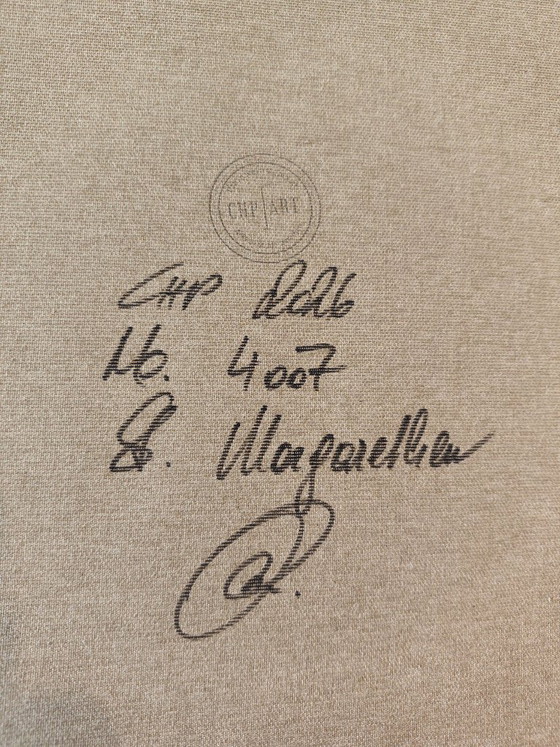 CHP | ART
CHP 2026
No. 4007
St. Margarethen